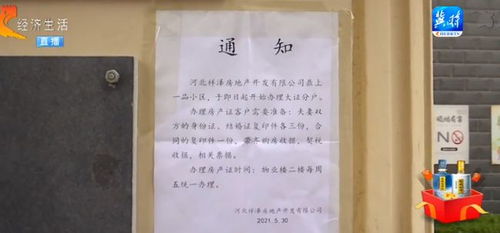 经济生活
直播
冀时
通知
河北祥泽房地产开发有限公司鼎上
一品小区，于即日起开始办理大证分户。
办理房产证客户需要准备：夫妻双
方的身份证、结婚证复印件各三份，合
同的复印件一份，带齐购房收据、契税
收据，相关票据。
办理房产证时间：物业楼二楼每周
五统一办理。
河北祥泽房地产开发有限公司
2021.5.30